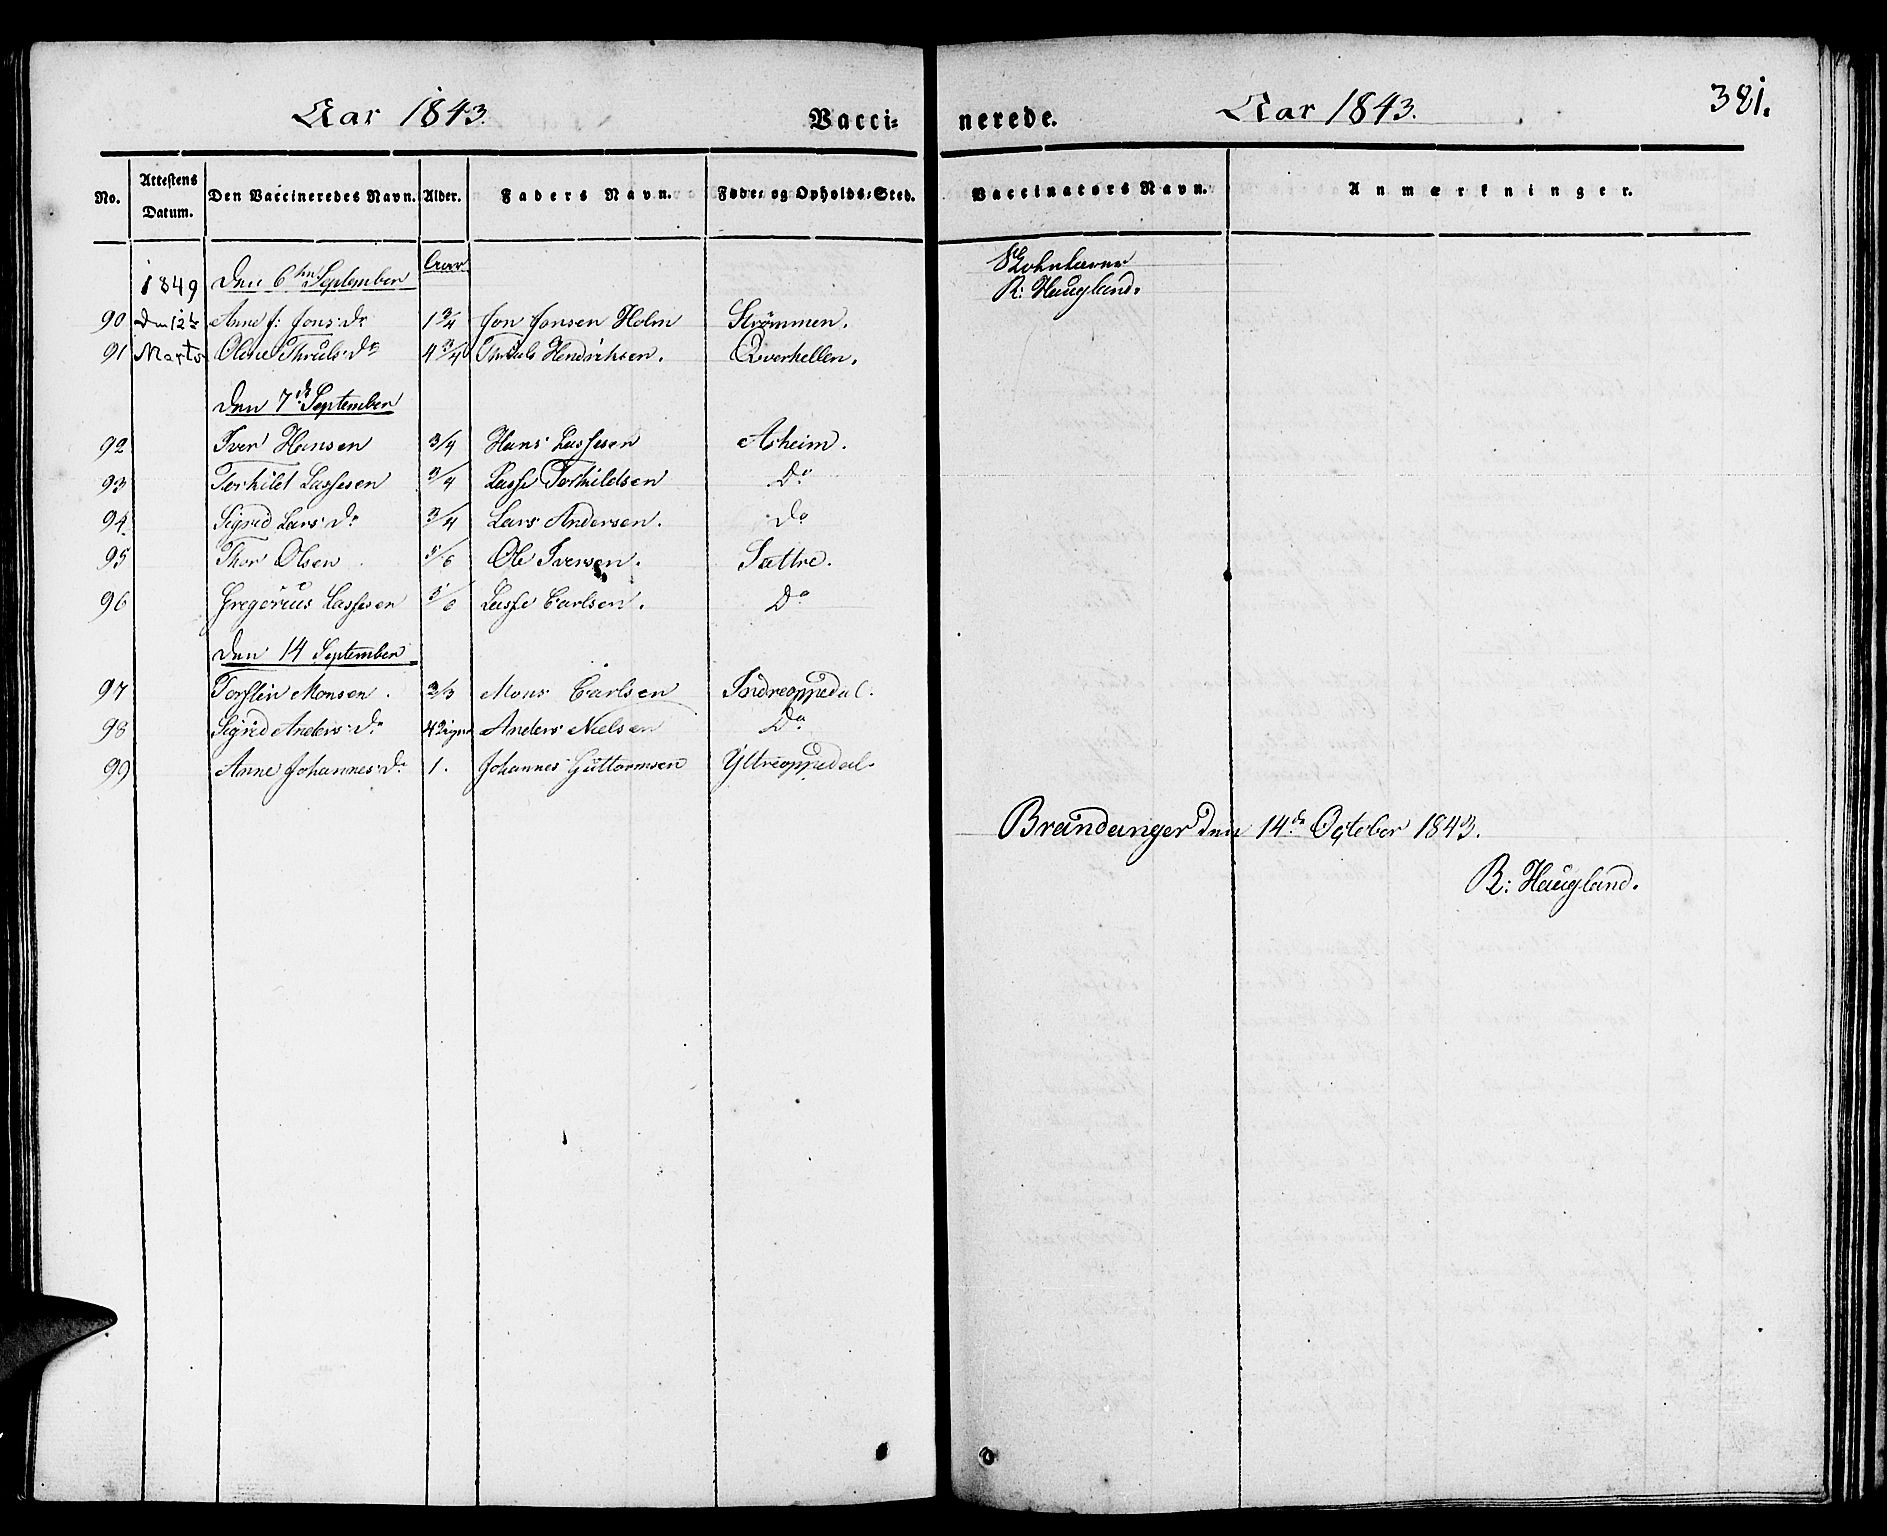 Aar 1843. Vacci= nerede. Aar 1843. 381.
No. Attestens Datum. Den Vaccineredes Navn. Alder. Faders Navn. Føde= og Opholds=Sted. Vaccinatørs Navn. Anmærkninger.
1849 Den 6te September Aar
R: Haugland.
90 Den 12te Anne J: Jons:Dr 1 3/4 Jon Jonsen Holm Strømmen.
91 Marts Oline Thruls:Dr 4 3/4 Thruls Hendrichsen. Qverhellen.
Den 7de September
92 Iver Hansen 3/4 Hans Lassesen Aheim.
93 Torkild Lassesen 3/4 Lasse Torkildsen Do
94. Sigrid Lars:Dr 3/4 Lars Andersen. Do
95 Thor Olsen 5/6 Ole Iversen. Sættre.
96 Gregorius Lassesen 5/6 Lasse Carlsen. Do
Den 14 September
97 Torstein Monsen. 2/3 Mons Carlsen Indreoppedal.
98 Sigrid Anders:Dr Anders Nielsen Do
99 Anne Johannes:Dr 1. Johannes Guttormsen Yttreoppedal.
Brandanger den 14de October 1843.
R: Haugland.